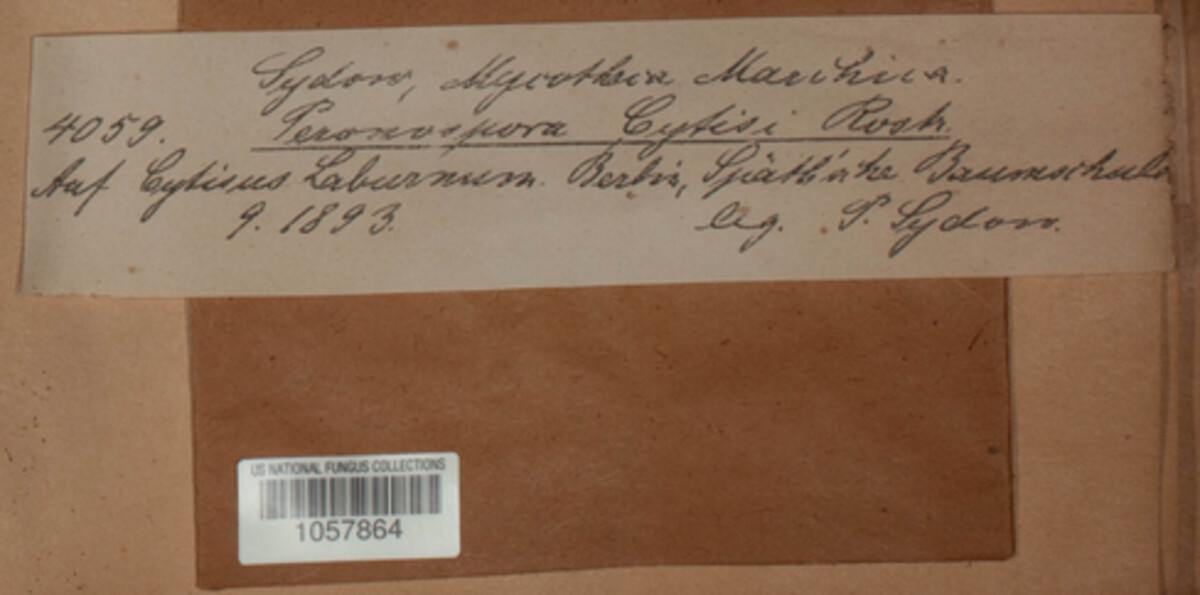 Sydow, Mycotheca Marchica.
4059. Peronospora Cytisi Rostr.
Auf Cytisus Laburnum. Berlin, Späth'sche Baumschule
9. 1893. leg. P. Sydow.
US NATIONAL FUNGUS COLLECTIONS
1057864